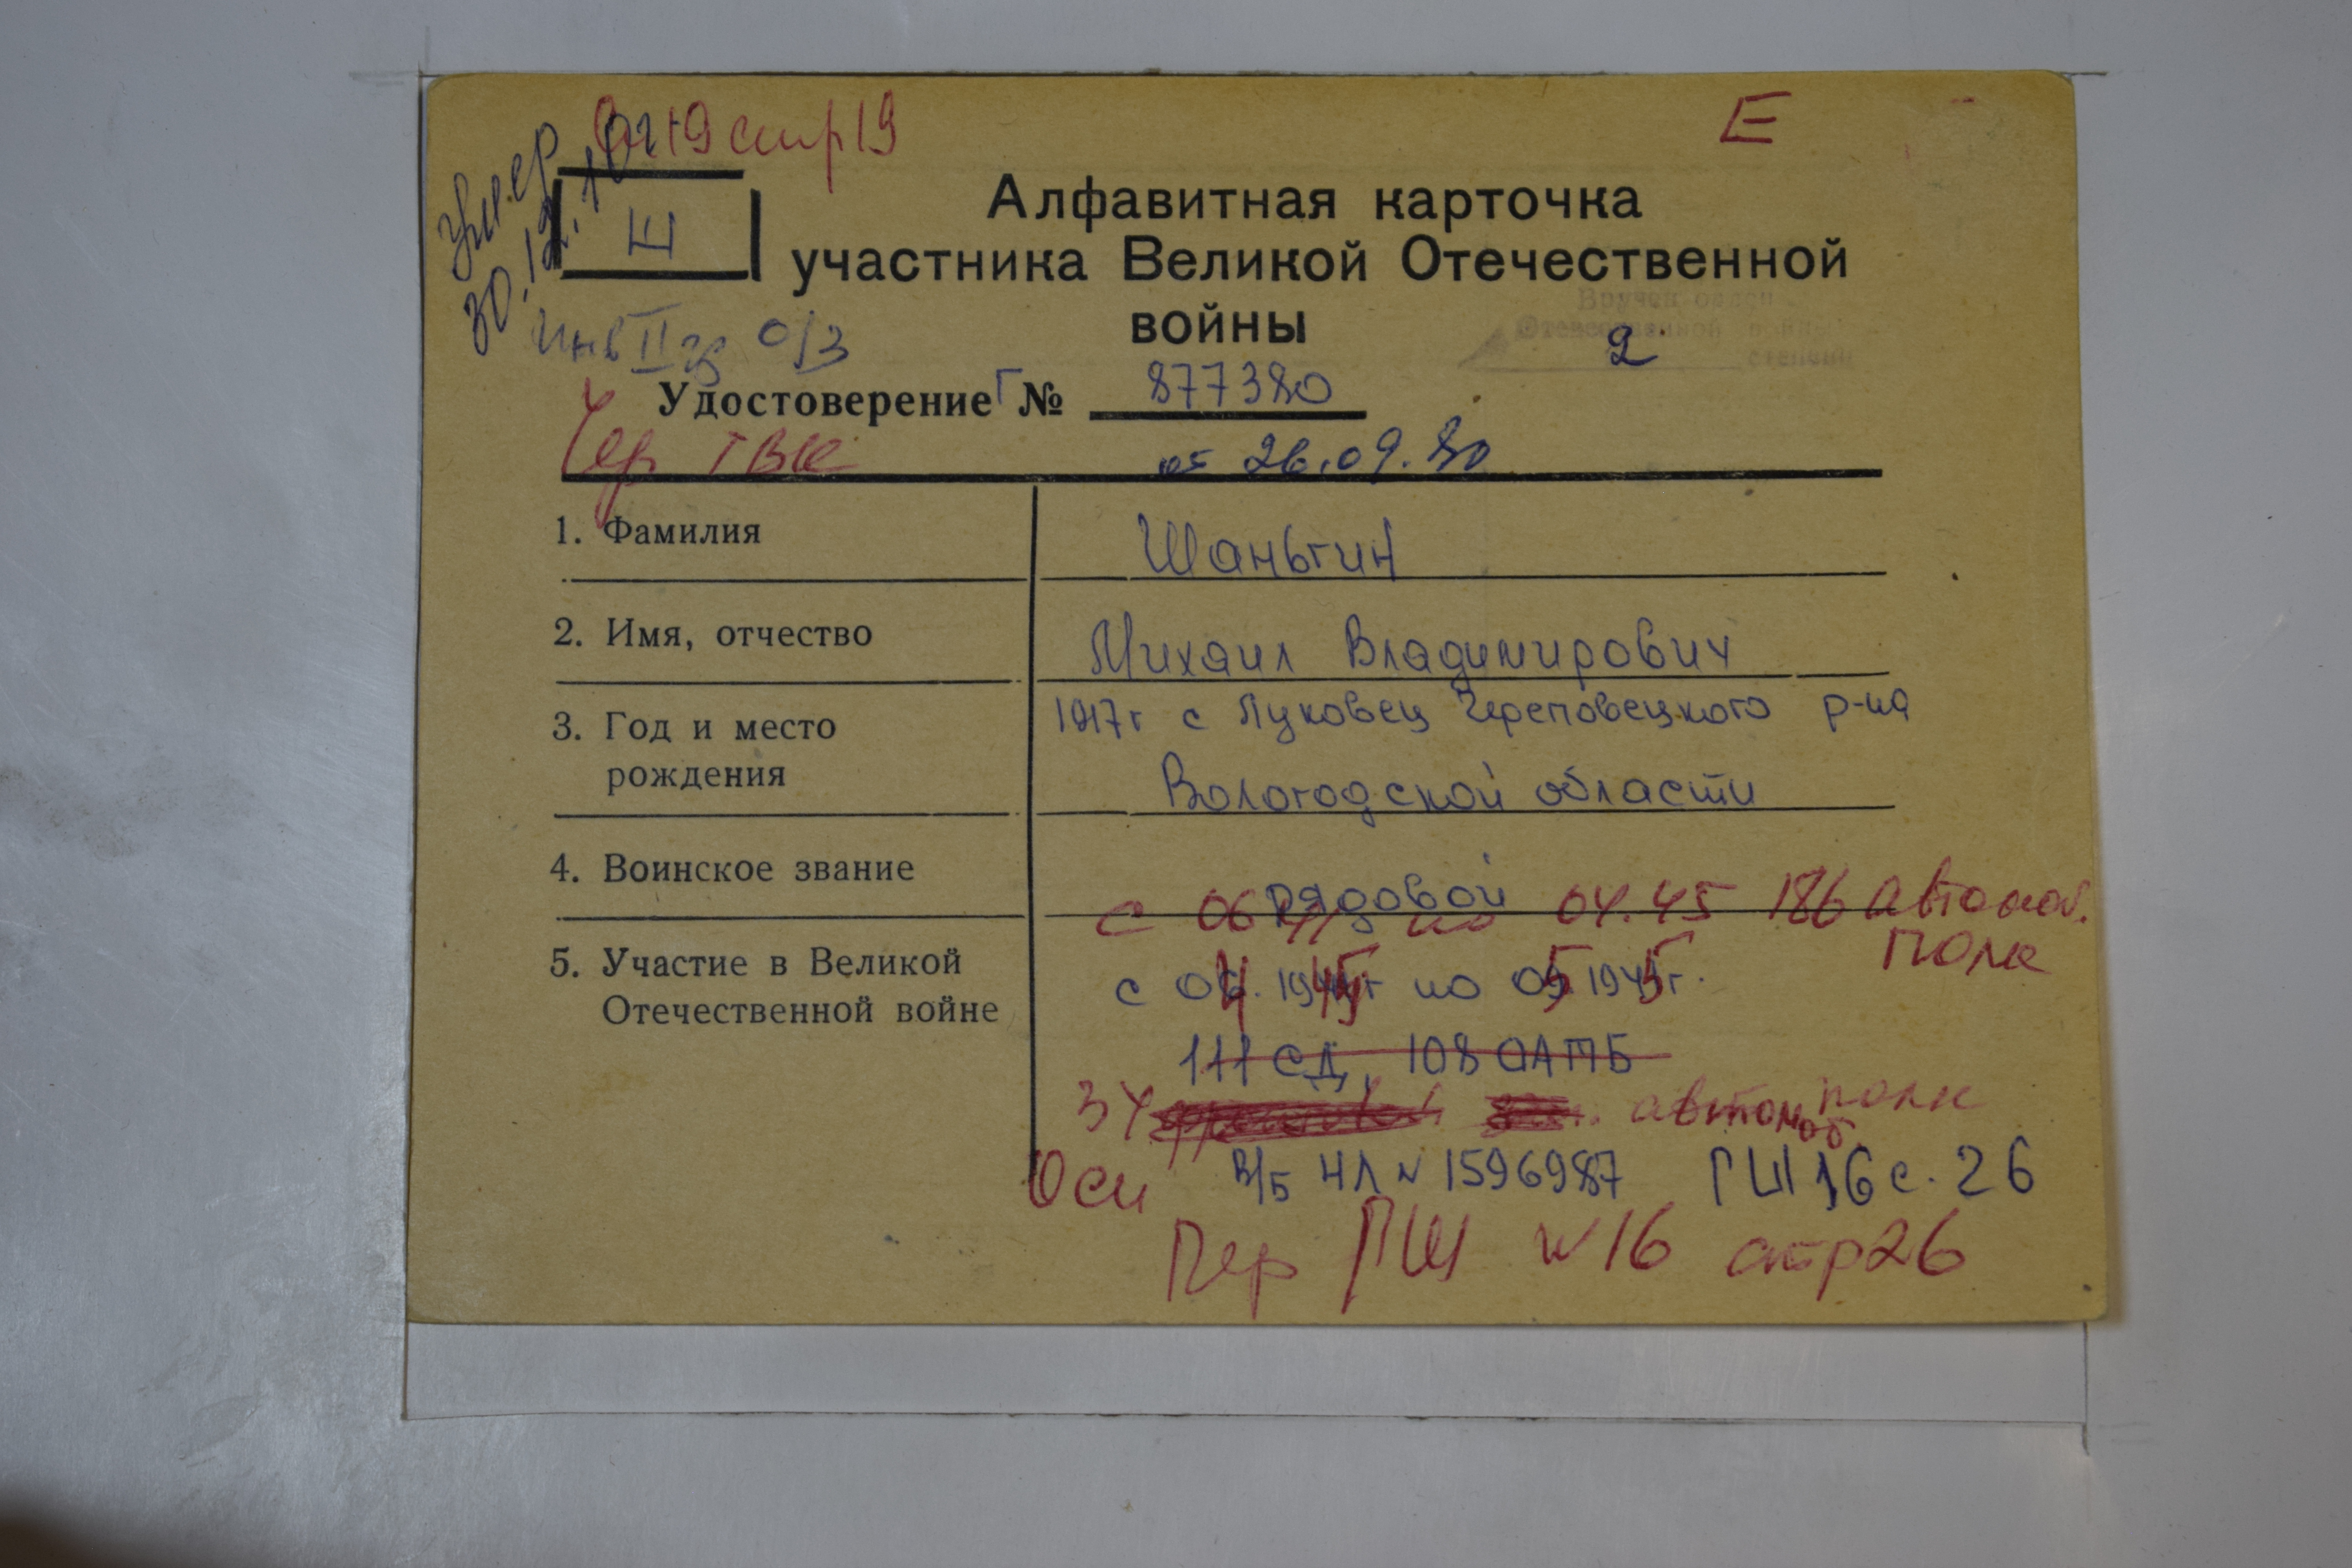 стр 19
Е
Умер
30.12.
Ш
Алфавитная карточка
участника Великой Отечественной
войны
Вручен орден
Отечественной войны
2
степени
Инв II гр о/з
Удостоверение Г № 877380
Чер ГВК
от 26.09.80
1. Фамилия
Шаньгин
2. Имя, отчество
Михаил Владимирович
3. Год и место
рождения
1917г с Луковец Череповецкого р-на
Вологодской области
4. Воинское звание
рядовой
с 06 41 по 04.45 186 автомоб.
полк
5. Участие в Великой
Отечественной войне
с 04. 1945г по 05 1945г.
111 СД, 108 ОАТБ
34 автомоб полк
Осн
В/Б НЛ № 1596987 ГШ 16 с. 26
Пер ПШ № 16 стр 26